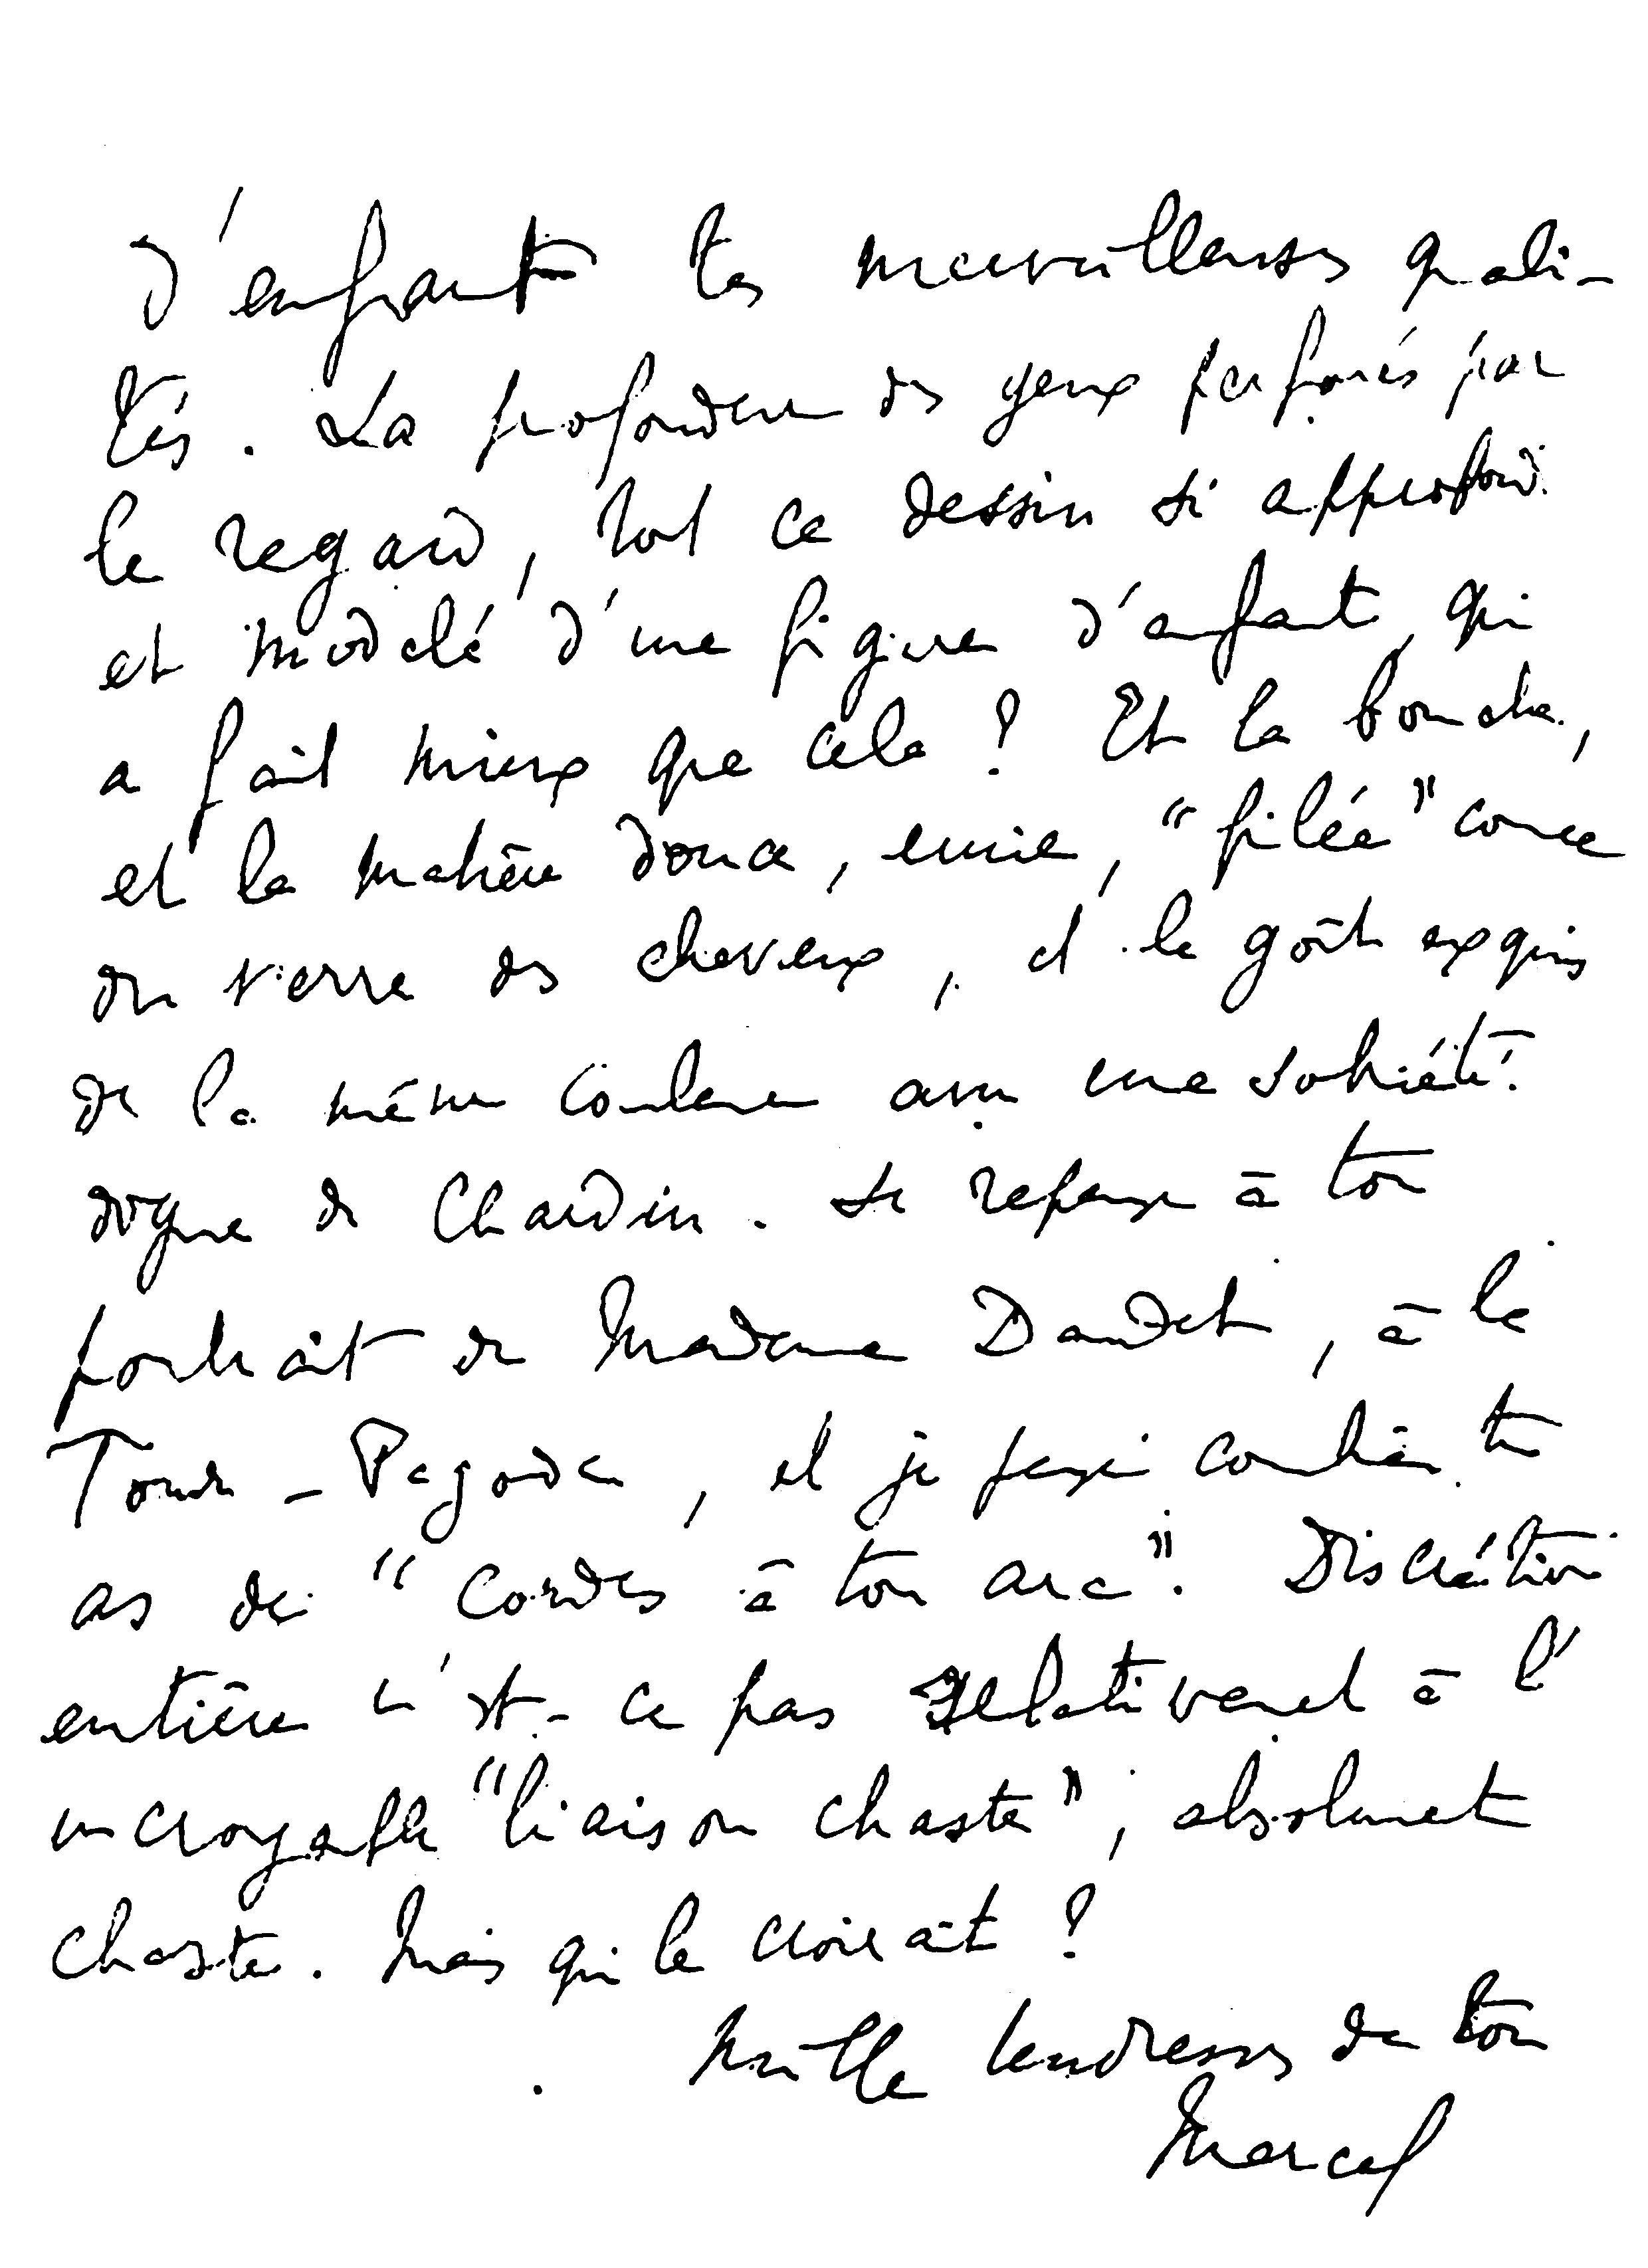 d'enfant tes merveilleuses quali-
tés. La profondeur des yeux perforés par
le regard, tout ce dessin si approfondi
et modelé d'une figure d'enfant, qui
a fait mieux que cela ? Et la bouche,
et la matière douce, unie, "filée" comme
du verre des cheveux, et le goût exquis
de la même couleur avec une sobriété
digne de Chardin. Je repense à ton
portrait de Madame Daudet, à la
Tour-Pagode, et je pense combien tu
as de "cordes à ton arc". Discrétion
entière n'est-ce pas relativement à l'
incroyable "liaison chaste", absolument
chaste. Mais qui le croirait ?
Mille tendresses de ton
Marcel